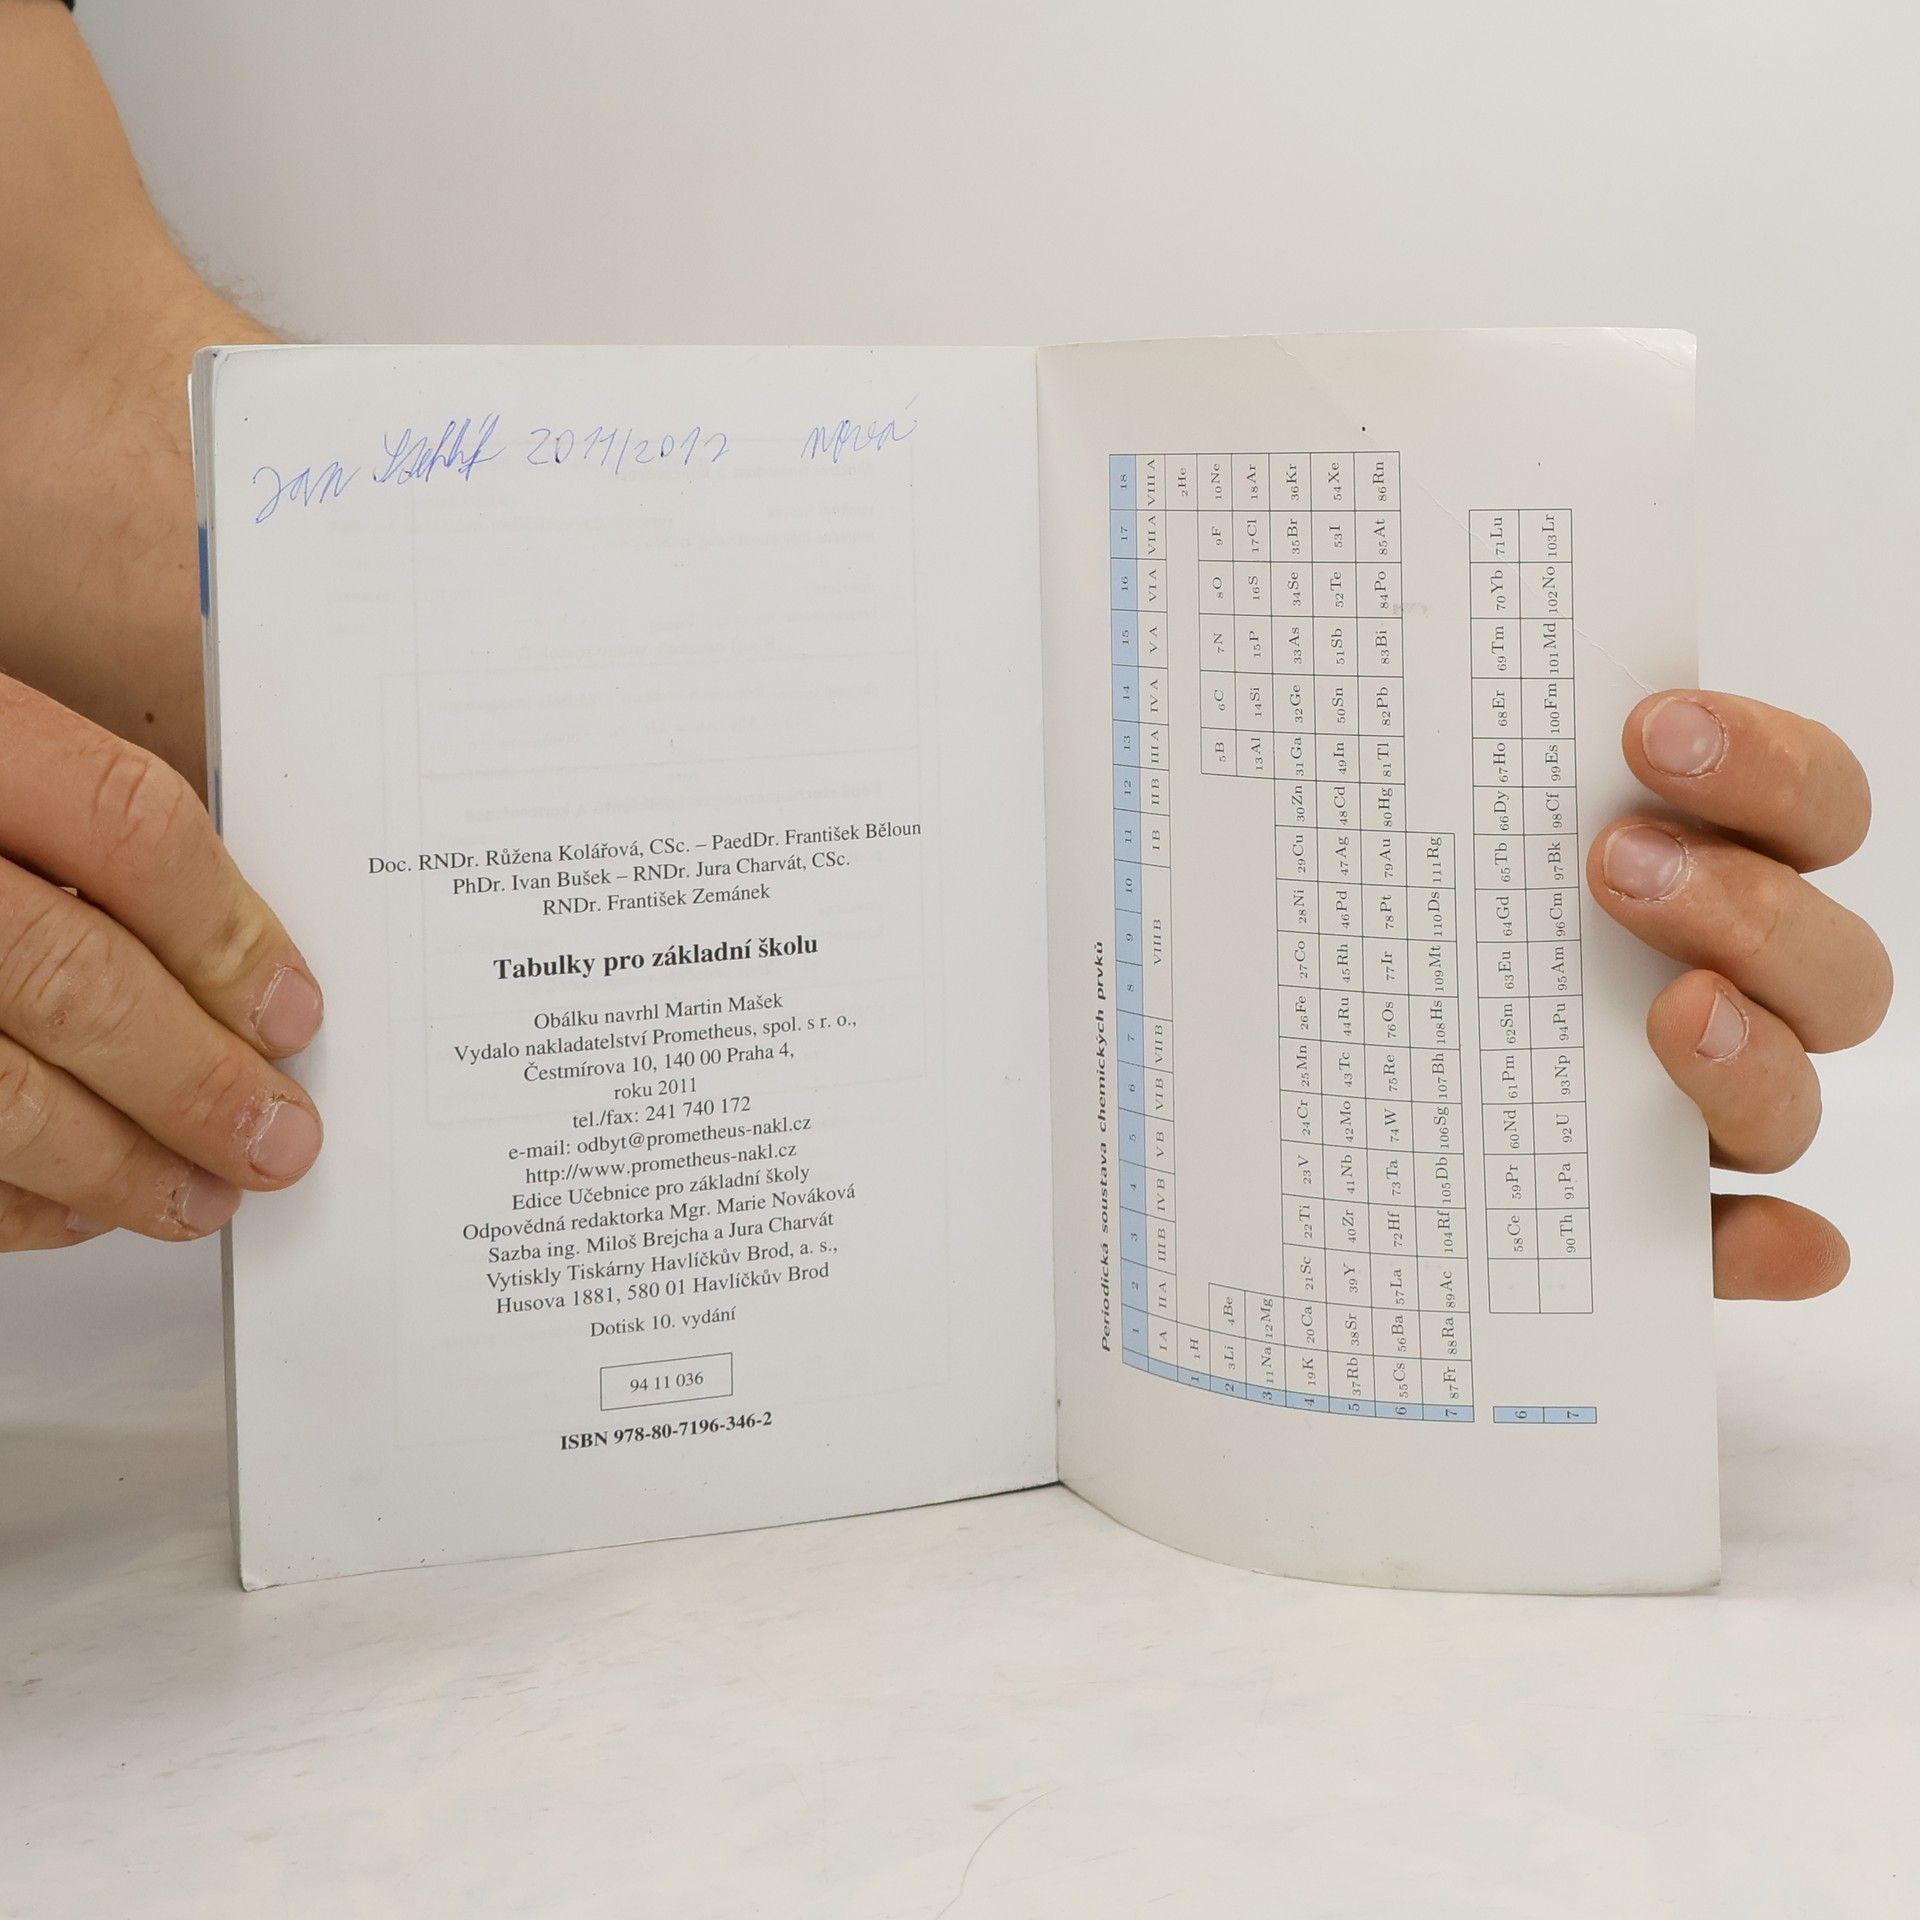 Jan 2011/2012 nová
Doc. RNDr. Růžena Kolářová, CSc. – PaedDr. František Běloun
PhDr. Ivan Bušek – RNDr. Jura Charvát, CSc.
RNDr. František Zemánek
Tabulky pro základní školu
Obálku navrhl Martin Mašek
Vydalo nakladatelství Prometheus, spol. s r. o.,
Čestmírova 10, 140 00 Praha 4,
roku 2011
tel./fax: 241 740 172
e-mail: odbyt@prometheus-nakl.cz
http://www.prometheus-nakl.cz
Edice Učebnice pro základní školy
Odpovědná redaktorka Mgr. Marie Nováková
Sazba ing. Miloš Brejcha a Jura Charvát
Vytiskly Tiskárny Havlíčkův Brod, a. s.,
Husova 1881, 580 01 Havlíčkův Brod
Dotisk 10. vydání
94 11 036
ISBN 978-80-7196-346-2
Periodická soustava chemických prvků
1 2 3 4 5 6 7 8 9 10 11 12 13 14 15 16 17 18
I A II A III B IV B V B VI B VII B VIII B I B II B III A IV A V A VI A VII A VIII A
1 1H 2He
2 3Li 4Be 5B 6C 7N 8O 9F 10Ne
3 11Na 12Mg 13Al 14Si 15P 16S 17Cl 18Ar
4 19K 20Ca 21Sc 22Ti 23V 24Cr 25Mn 26Fe 27Co 28Ni 29Cu 30Zn 31Ga 32Ge 33As 34Se 35Br 36Kr
5 37Rb 38Sr 39Y 40Zr 41Nb 42Mo 43Tc 44Ru 45Rh 46Pd 47Ag 48Cd 49In 50Sn 51Sb 52Te 53I 54Xe
6 55Cs 56Ba 57La 72Hf 73Ta 74W 75Re 76Os 77Ir 78Pt 79Au 80Hg 81Tl 82Pb 83Bi 84Po 85At 86Rn
7 87Fr 88Ra 89Ac 104Rf 105Db 106Sg 107Bh 108Hs 109Mt 110Ds 111Rg
6 58Ce 59Pr 60Nd 61Pm 62Sm 63Eu 64Gd 65Tb 66Dy 67Ho 68Er 69Tm 70Yb 71Lu
7 90Th 91Pa 92U 93Np 94Pu 95Am 96Cm 97Bk 98Cf 99Es 100Fm 101Md 102No 103Lr